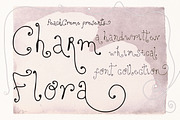 PeachCreme presents
Charm
Flora
a handwritten
whimsical
font collection